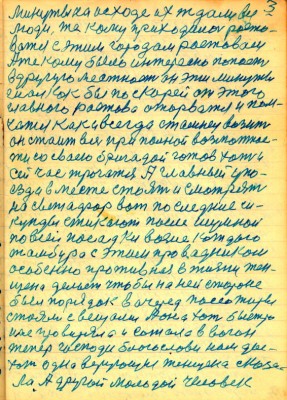 3
минуты на исходе их ждали все
люди, те кому приходилось расто-
ватся с этим городом растовом
А те кому было интересно попаст
в другую местность он эти минуты
считал как бы поскорей от этого
главного растова оторватся и пом-
чатся как всегда стамнеу возит
он стаит вля при полной возможнос-
ти со своею бригадой готов хоть и
сей час трогатся А главный у по-
езда вместе стоят и смотрят
на светафор вот последние се-
кунды стихают после шумной
по всей посадки возле каждого
тамбура с этим провадником
особенно противная в тижни жен-
щена делает чтобы на ней стороне
был порядок в очеред пассажиры
стояли с вещами А она хот быстро
нас проверяла и сожала в вагон
тепер господи благослови нам гово-
рит одна верующия женщена сказа-
ла А другой молодой человек